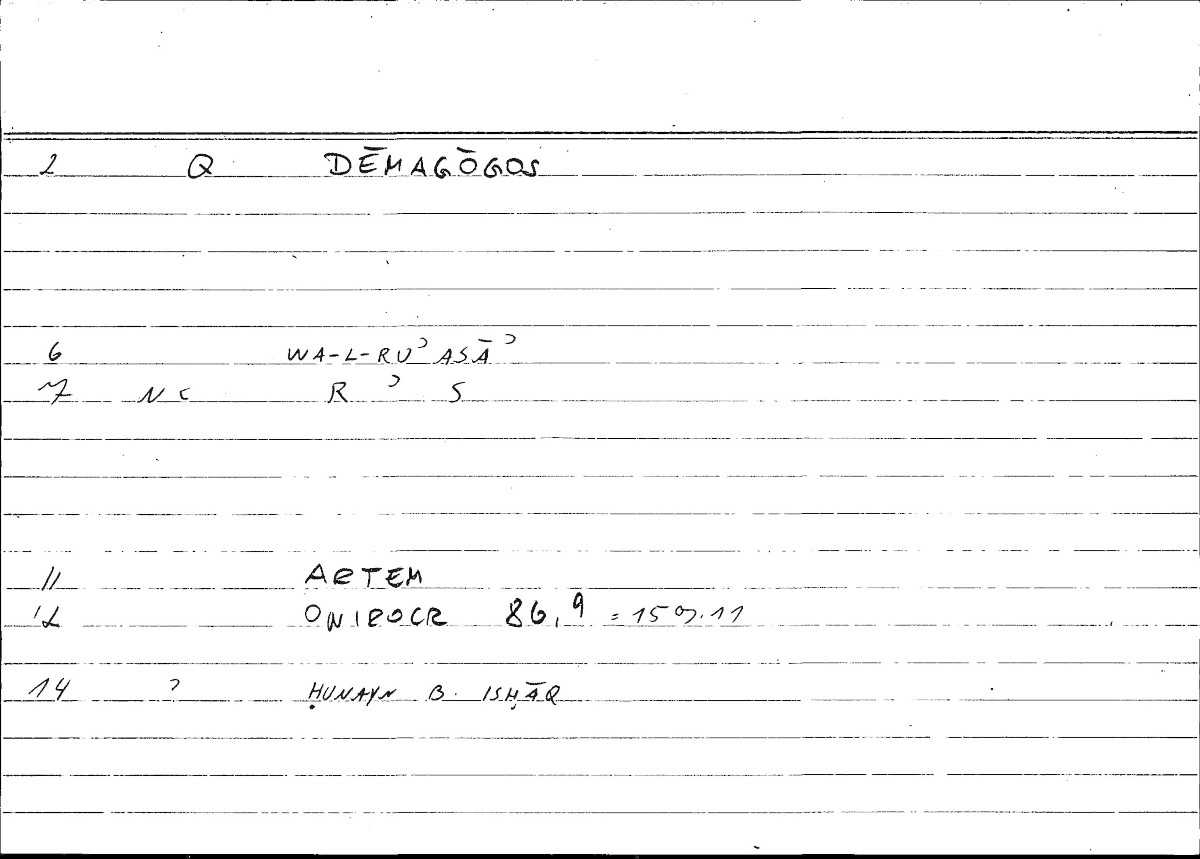 2 Q DĒMAGŌGOS
6 WA-L-RUʾASĀʾ
7 NC R ʾ S
11 ARTEM
12 ONIROCR 86,9 = 159.11
14 ? ḤUNAYN B. ISḤĀQ